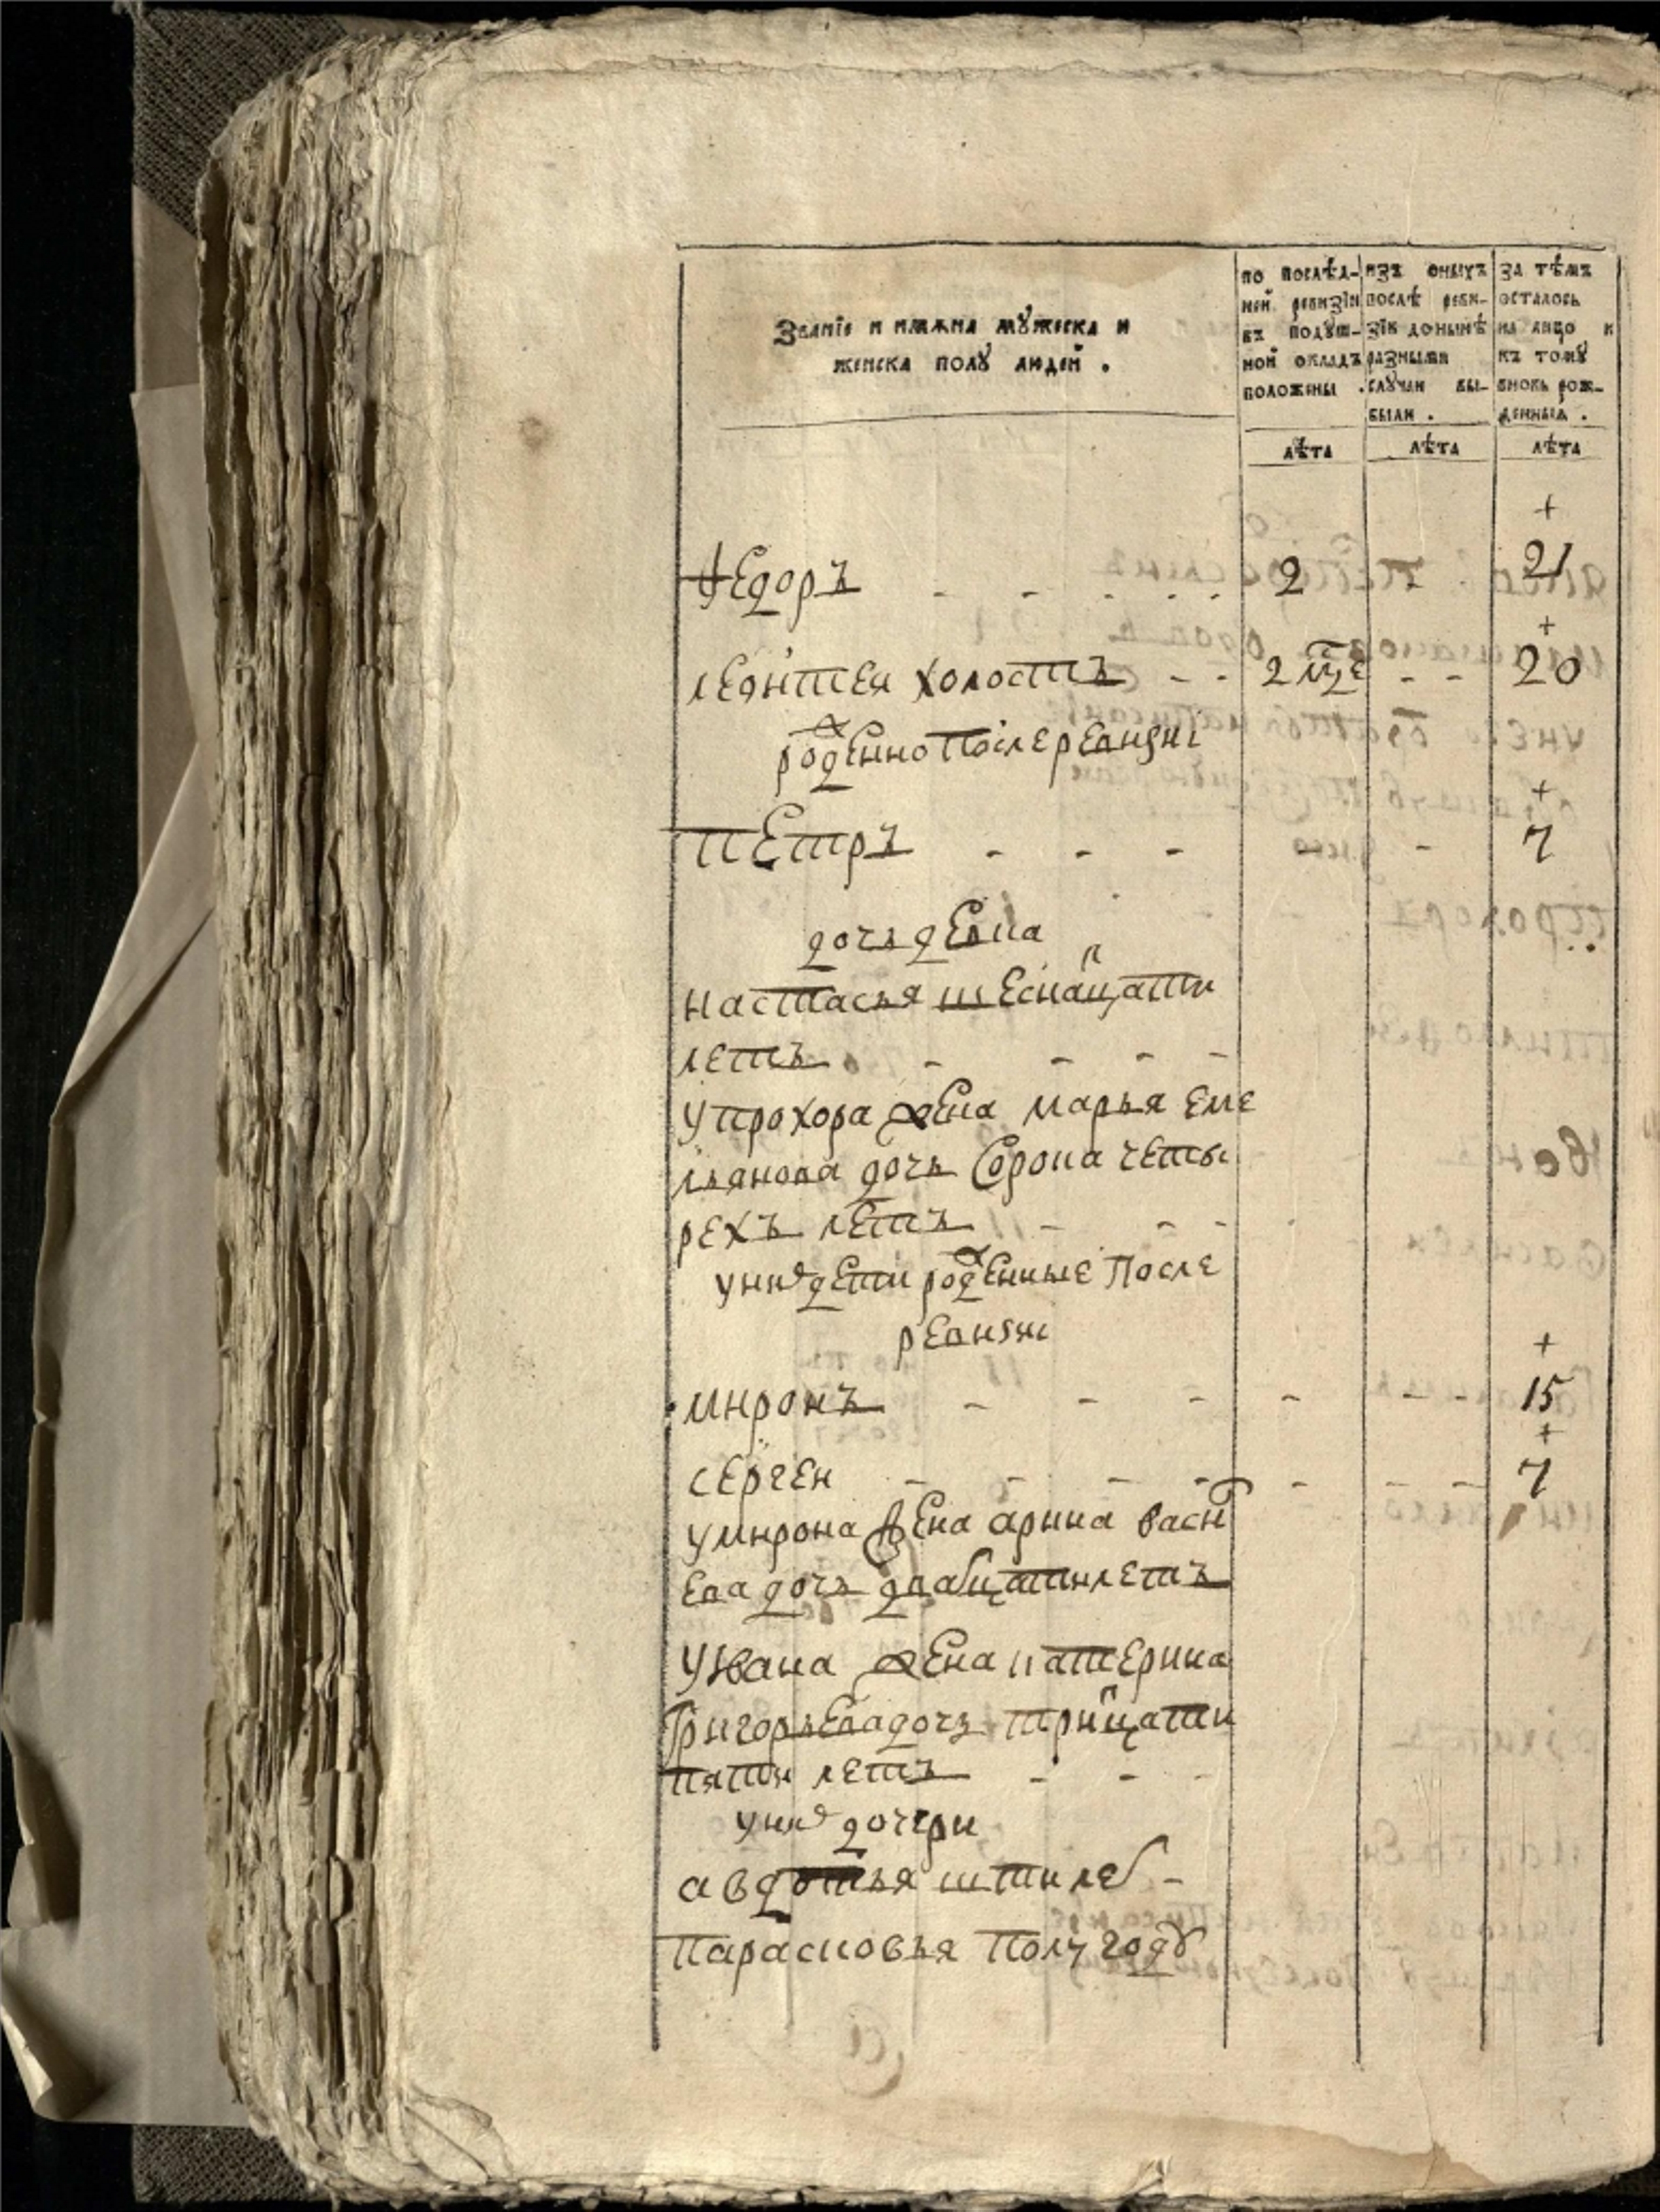 Званїе и имѧна мꙋжеска и
женска полꙋ людей .
по послѣд-
ней ревизїи
въ подꙋш-
ной окладъ
положены .
изъ оныхъ
послѣ реви-
зїи донынѣ
разными
слꙋчаи вы-
были .
за тѣмъ
осталось
на лицо и
къ томꙋ
вновь рож-
денныѧ .
лѣта лѣта лѣта
+
ѳедоръ - - - - - 2 - 21
+
леонтея холостъ - - 2 мце - - 20
роженно после ревизиі
+
петръ - - - - - 7
дочь девка
настасья шеснацати
летъ - - - -
у прохора жена марья еме
льянова дочь сорока четы
рехъ летъ - - -
у них дети роженные после
ревизиі
+
миронъ - - - - - - 15
+
сергеи - - - - - - - 7
у мирона жена арина васи
ева дочь двацати летъ
у ивана жена катерина
григорьева дочь трицати
пяти летъ - - -
у них дочери
авдотья шти лет -
парасковья полугоду